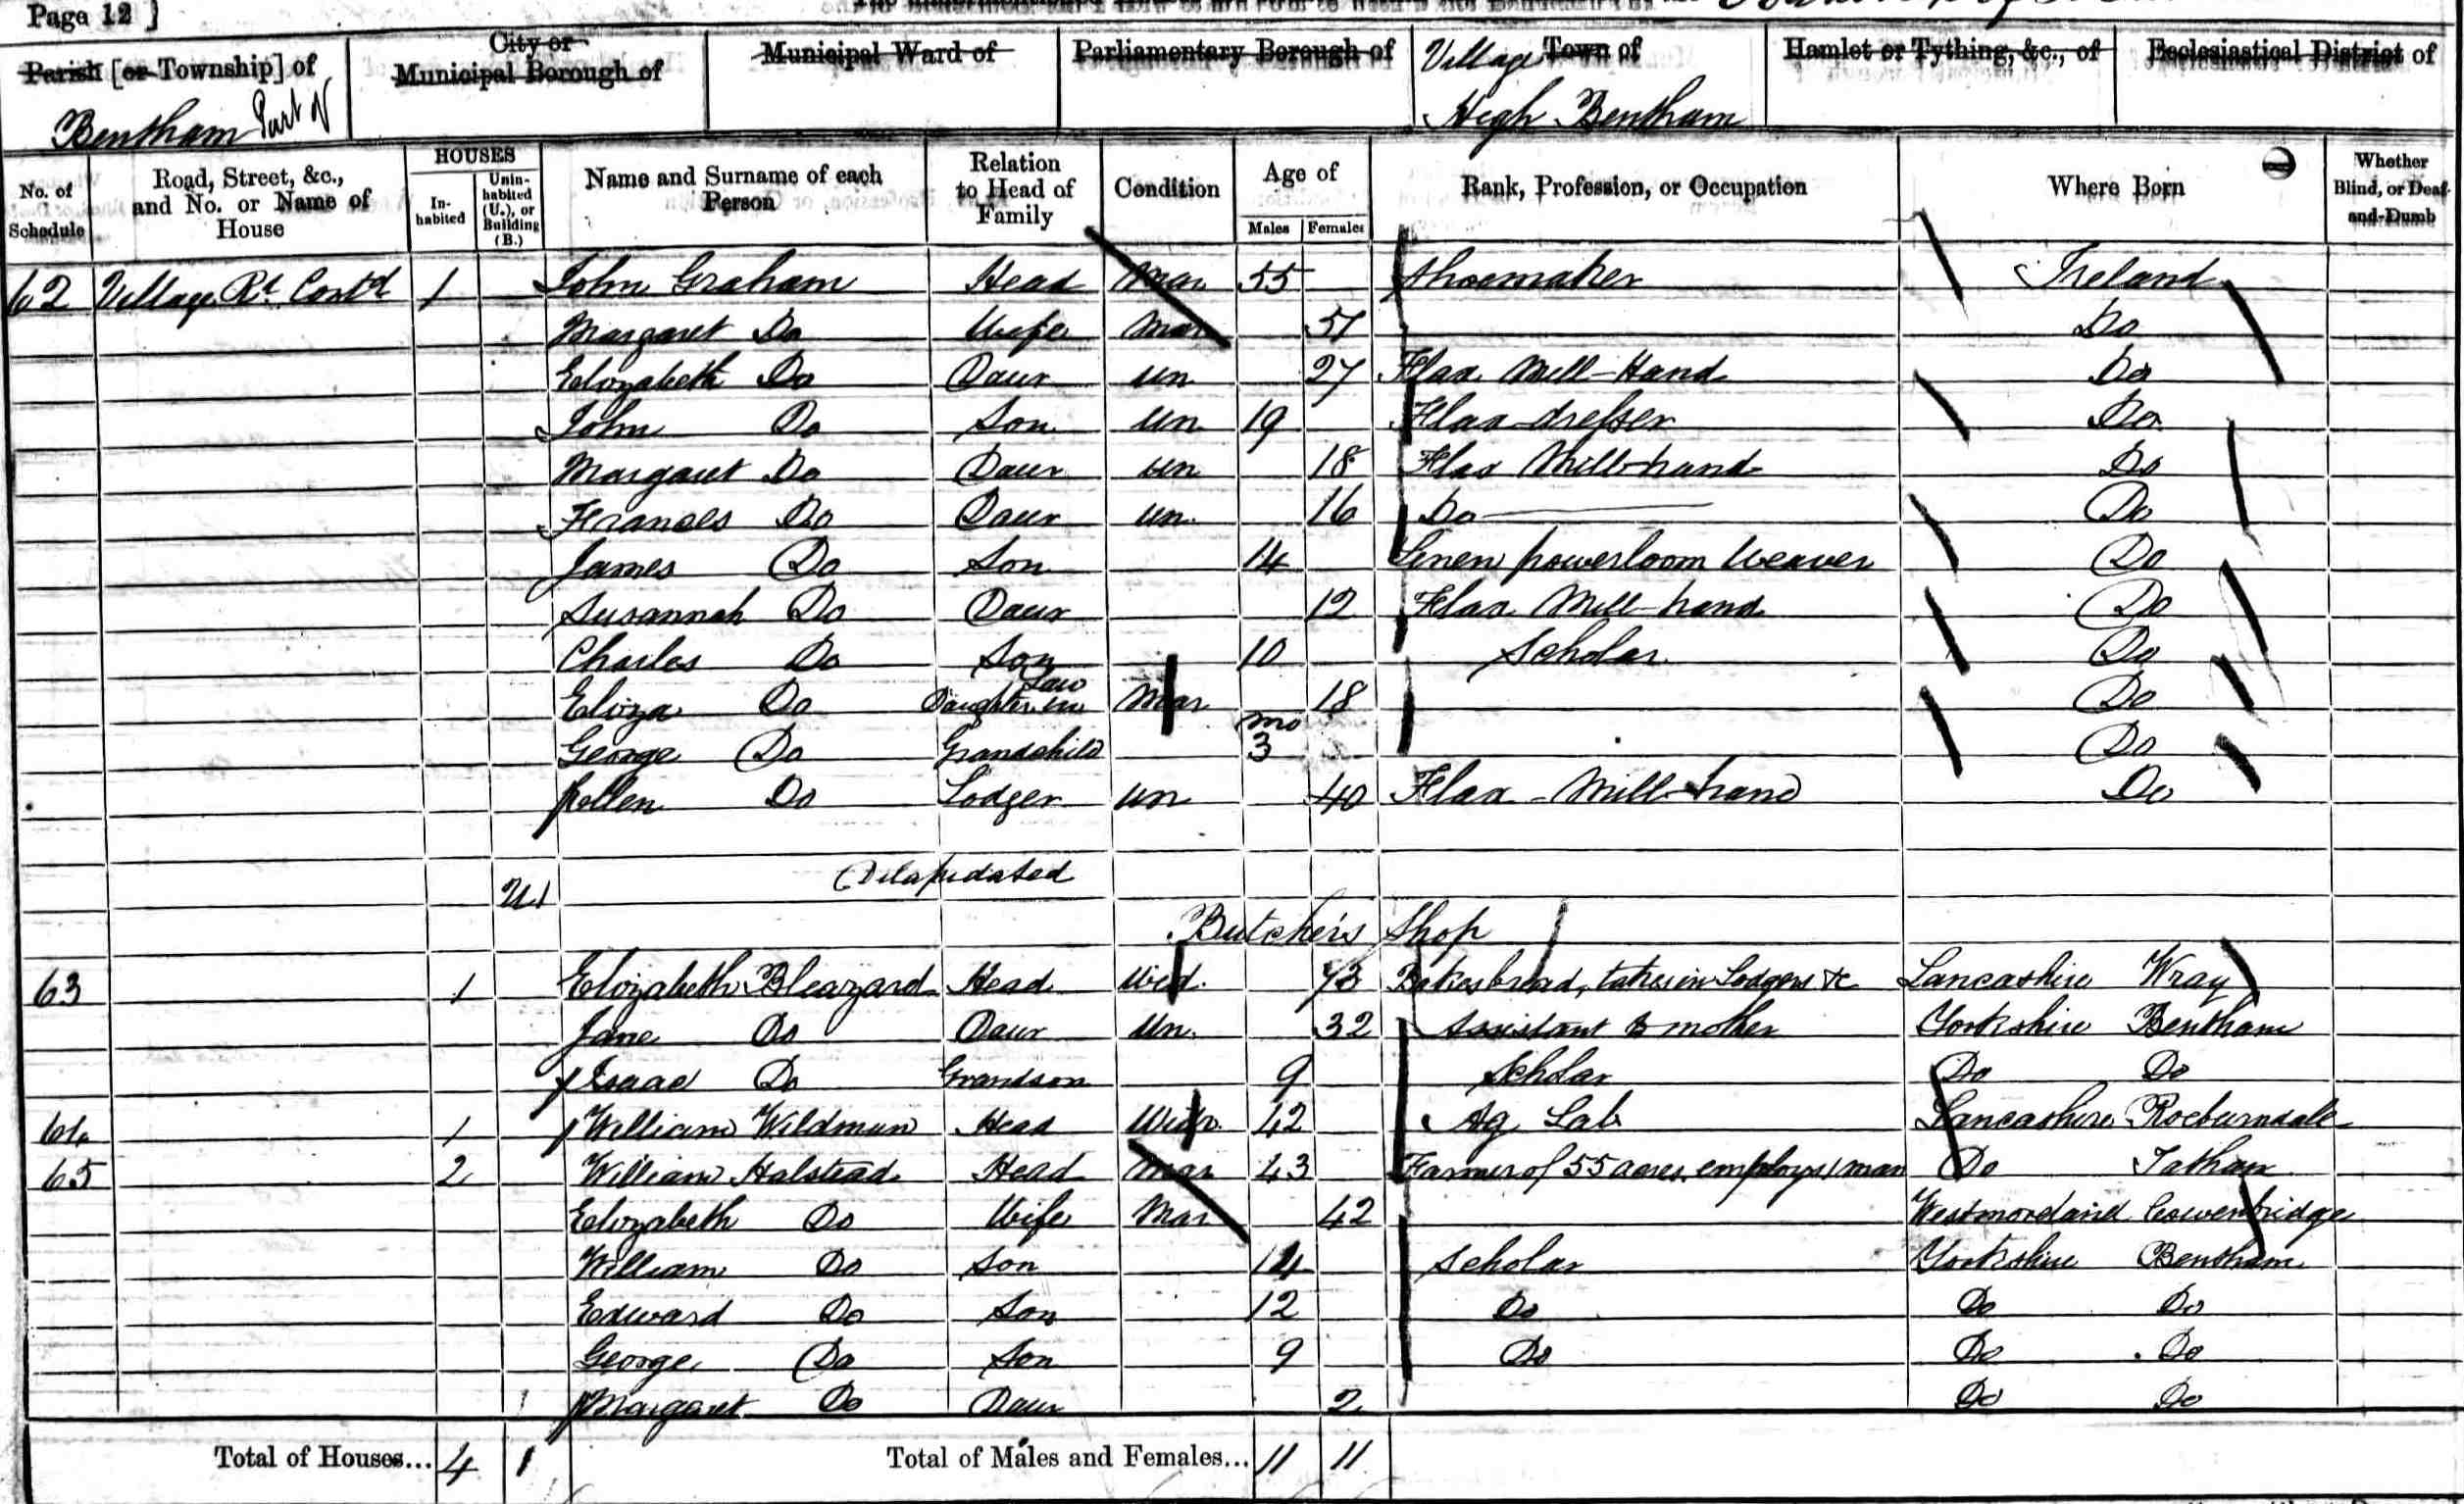 Page 12 ]
Parish [or Township] of
City or Municipal Borough of
Municipal Ward of
Parliamentary Borough of
Village Town of
Hamlet or Tything, &c., of
Ecclesiastical District of
Bentham Part of
High Bentham
No. of Schedule
Road, Street, &c., and No. or Name of House
HOUSES
In-habited
Unin-habited (U.), or Building (B.)
Name and Surname of each Person
Relation to Head of Family
Condition
Age of
Males
Females
Rank, Profession, or Occupation
Where Born
Whether Blind, or Deaf-and-Dumb
62 Village Rd Contd 1 John Graham Head Mar 55 Shoemaker Ireland
Margaret Do Wife Mar 51 Do
Elizabeth Do Daur Un 27 Flax Mill-Hand Do
John Do Son Un 19 Flax dresser Do
Margaret Do Daur Un 18 Flax Mill-hand Do
Frances Do Daur Un 16 Do Do
James Do Son 14 Linen powerloom Weaver Do
Susannah Do Daur 12 Flax Mill-hand Do
Charles Do Son 10 Scholar Do
Eliza Do Daughter in Law Mar 18 Do
George Do Grandchild mo 3 Do
Ellen Do Lodger Un 40 Flax-Mill-hand Do
U 1 Dilapidated
Butcher's Shop
63 1 Elizabeth Bleazard Head Wid. 73 Bakes bread, takes in Lodgers &c Lancashire Wray
Jane Do Daur Un. 32 Assistant to mother Yorkshire Bentham
Isaac Do Grandson 9 Scholar Do Do
64 1 William Wildman Head Widr. 42 Ag Lab Lancashire Roeburndale
65 2 William Halstead Head Mar 43 Farmer of 55 acres, employs 1 man Do Tatham
Elizabeth Do Wife Mar 42 Westmoreland Cowenbridge
William Do Son 14 Scholar Yorkshire Bentham
Edward Do Son 12 Do Do Do
George Do Son 9 Do Do Do
Margaret Do Daur 2 Do Do
Total of Houses... 4 1 Total of Males and Females... 11 11